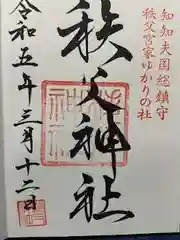 知知夫国総鎮守
秩父宮家ゆかりの社
秩父神社
令和五年三月十二日